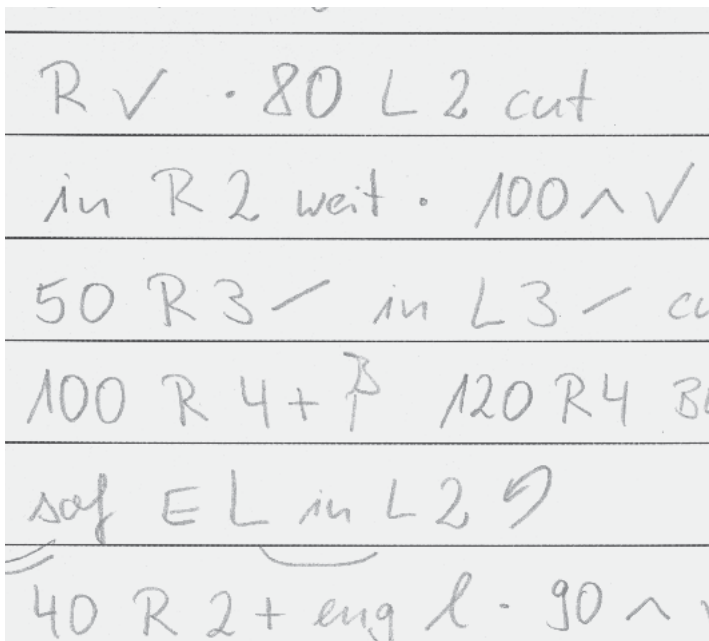 R ✓ · 80 L 2 cut
in R 2 weit · 100 ^ ✓
50 R 3 / in L 3 /
100 R 4 + 120 R4
sof E L in L 2
40 R 2 + eng l · 90 ^